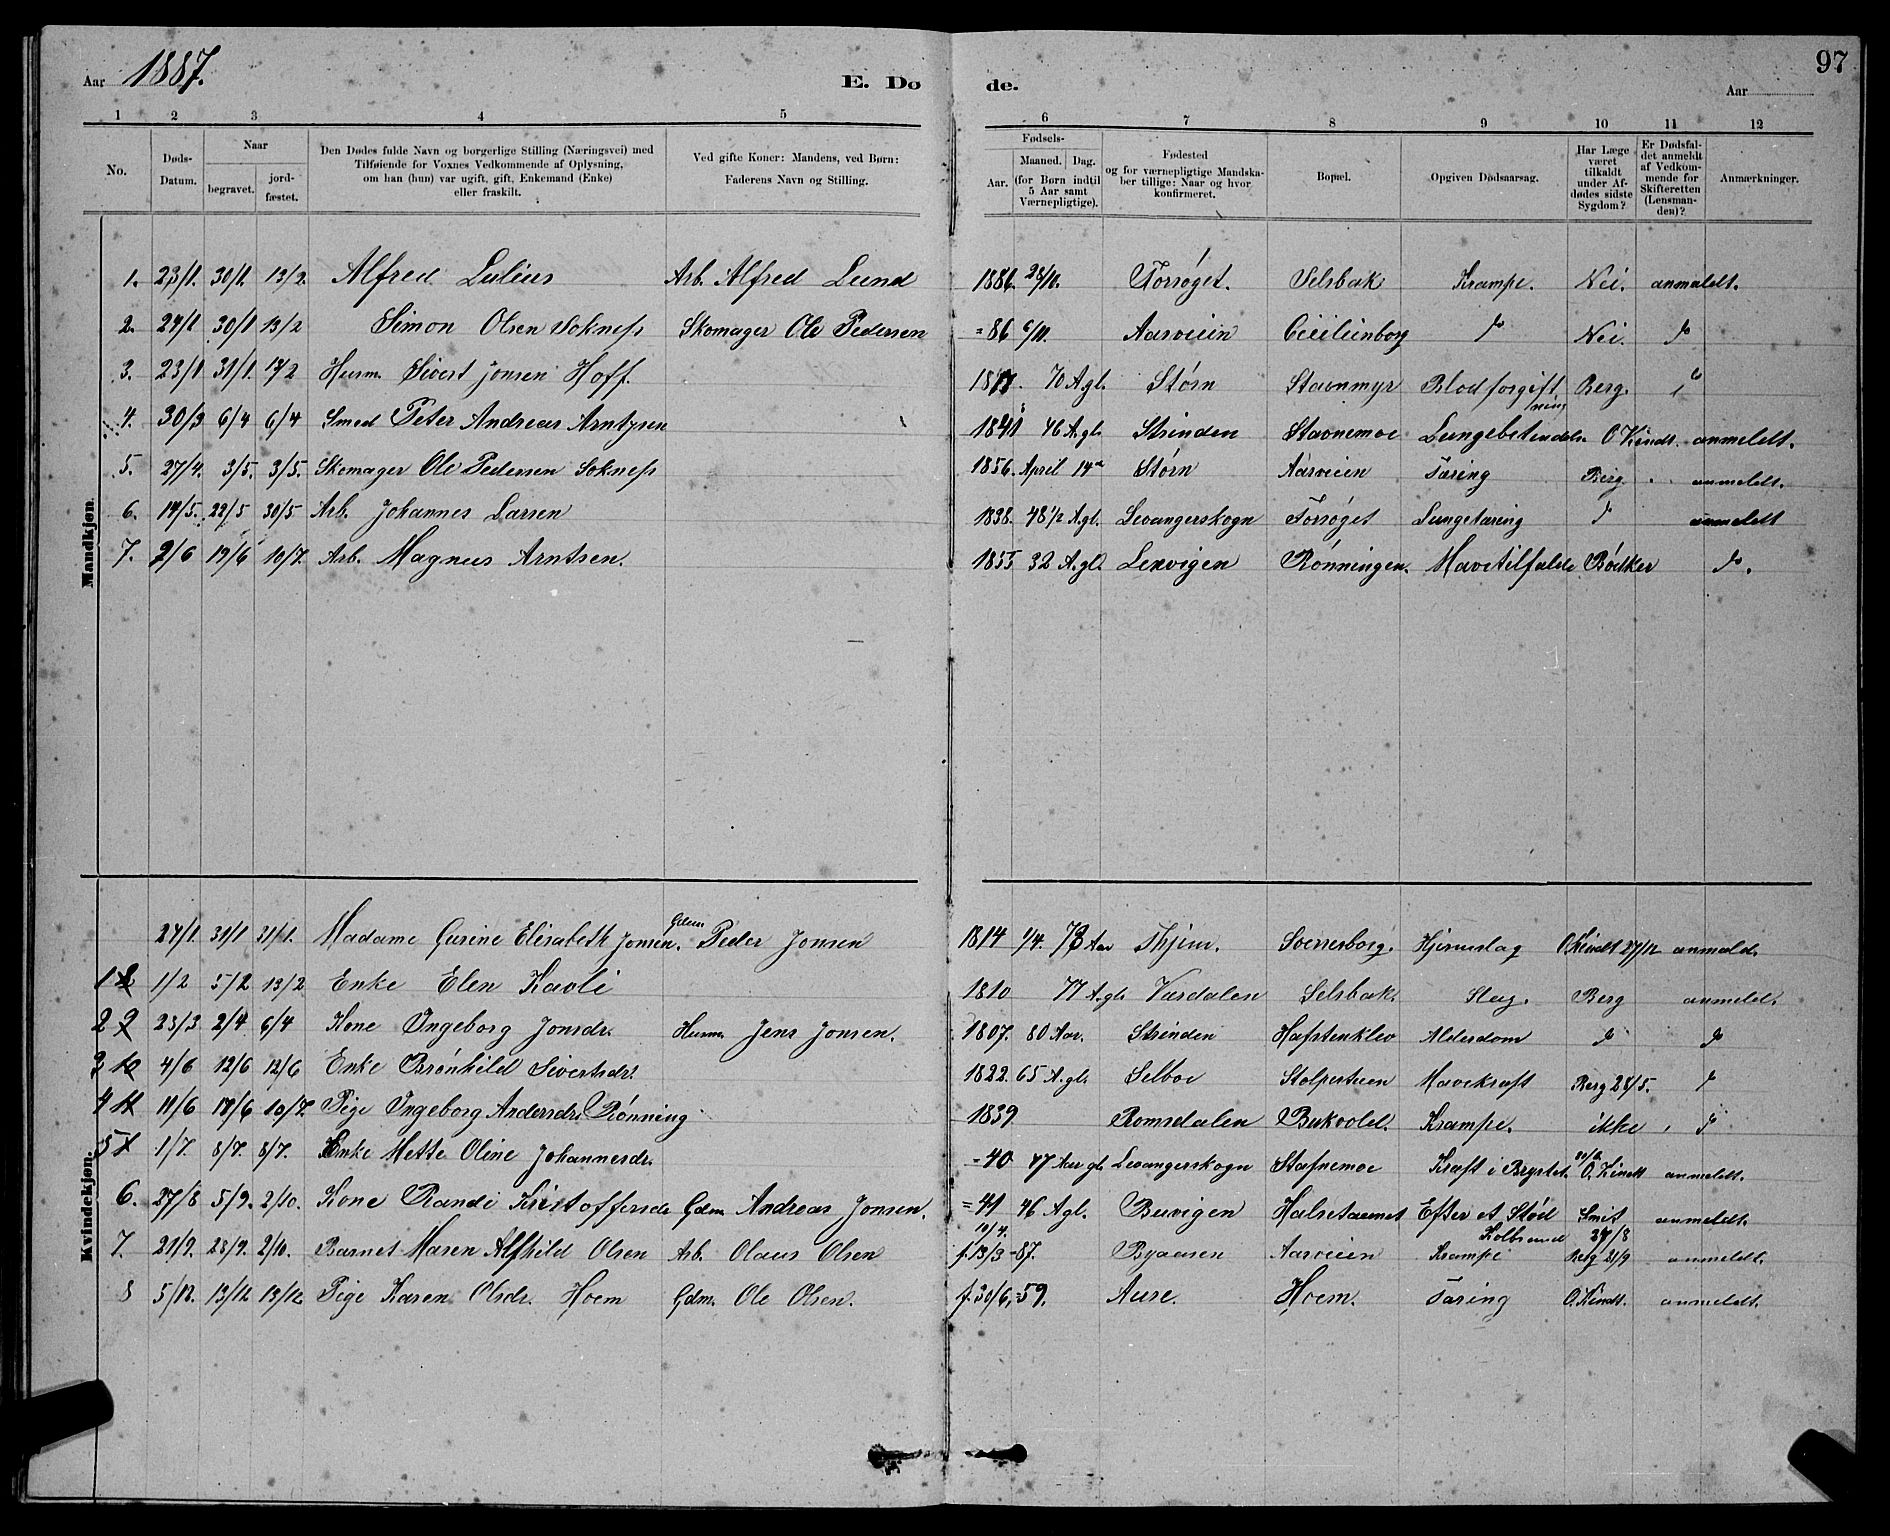 Aar 1887. E. Dø de. Aar 97
1 2 3 4 5 6 7 8 9 10 11 12
No. Døds-Datum. Naar begravet. jord-fæstet. Den Dødes fulde Navn og borgerlige Stilling (Næringsvei) med Tilføiende for Voxnes Vedkommende af Oplysning, om han (hun) var ugift, gift, Enkemand (Enke) eller fraskilt. Ved gifte Koner: Mandens, ved Børn: Faderens Navn og Stilling. Fødsels- Aar. Maaned. Dag. (for Børn indtil 5 Aar samt Værnepligtige). Fødested og for værnepligtige Mandska-ber tillige: Naar og hvor konfirmeret. Bopæl. Opgiven Dødsaarsag. Har Læge været tilkaldt under Af-dødes sidste Sygdom? Er Dødsfal-det anmeldt af Vedkom-mende for Skifteretten (Lensman-den)? Anmærkninger.
Mandkjøn.
1. 23/1. 30/1. 13/2. Alfred Julius Arb. Alfred Lund 1886. 28/10. Forsøget. Selsbak Krampe. Nei. anmeldt.
2. 24/1 30/1 13/2 Simon Olsen Sokness Skomager Ole Pedersen = 86 6/10. Aasveien Cecilienborg do Nei. do
3. 23/1 31/1. 13/2 Husm. Sivert Jonsen Hoff. 1817. 70 A gl. Størn Stavnmyr Blodforgiftning Berg. do
4. 30/3 6/4 6/4 Smed Peter Andreas Arntzen 1841 46 A. gl. Strinden Stavnemoe Lungebetendelse O Kindt. anmeldt.
5. 27/4. 3/5. 3/5. Skomager Ole Pedersen Sokness 1856. April 14de Størn Aasveien Tæring Berg. anmeldt.
6. 14/5. 22/5 30/5 Arb. Johannes Larsen 1838. 48 1/2 A gl. Levangerskogn Forsøget Lungetæring do anmeldt
7. 2/6 19/6 10/7. Arb. Magnus Arntsen. 1855 32 A. gl. Lexvigen Rønningen. Mavetilfælde Bødtker do.
Kvindekjøn.
24/1. 31/1 31/1. Madame Gurine Elisabeth Jonsen. Gdm Peder Jonsen 1814 1/4. 73 Aar Thjem. Sverresborg. Hjerneslag O. Kindt 27/12 anmeld.
1 8 1/2 5/2 13/2 Enke Elen Kavli 1810 77 A. gl. Værdalen Selsbak. Slag. Berg anmeldt.
2 9 23/3 2/4 6/4 Kone Ingeborg Jonsdr. Husm. Jens Jonsen. 1807. 80 Aar. Strinden Hafstenklev Alderdom do do
3 10 4/6 12/6 12/6 Enke Brønhild Sivertsdr. 1822. 65 A. gl. Selboe Stolperteen Mavekræft Berg 28/5. do
4 11 11/6 17/6 10/7. Pige Ingeborg Andersdr. Rønning 1839 Romsdalen Bukvold. Krampe. ikke do
5 1/7. 8/7. 8/7. Enke Mette Oline Johannesdr. = 40 47 Aar gl. Levangerskogn Stafnemoe Kræft i Brystet. O. Kindt anmeldt.
6. 27/8 5/9. 2/10. Kone Randi Kristoffersdr Gdm. Andreas Jonsen. = 41 46 A gl. Buvigen Halsetaunet Efter et Stød Koldbrand Smit 27/8 anmeldt.
7. 21/9. 28/9. 2/10. Barnet Maren Alfhild Olsen Arb. Olaus Olsen f. 13/3 -87. Byaasen Aasveien Krampe Berg 21/9 anmeldt.
8 5/12. 13/12 13/12 Pige Karen Olsdr. Hoem Gdm. Ole Olsen. f. 30/6. =59. Aure. Hoem. Tæring O. Kindt. anmeldt.